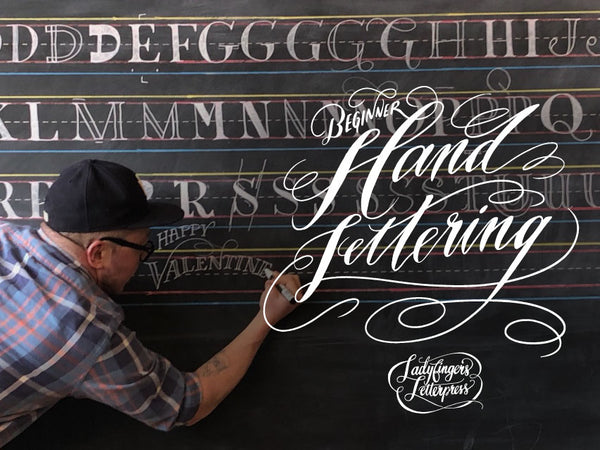 D D D E F G G G G G H H I J
K L M M M N N Q
R R S S S S T U U
HAPPY
VALENTINE
BEGINNER
Hand
Lettering
Ladyfingers
Letterpress